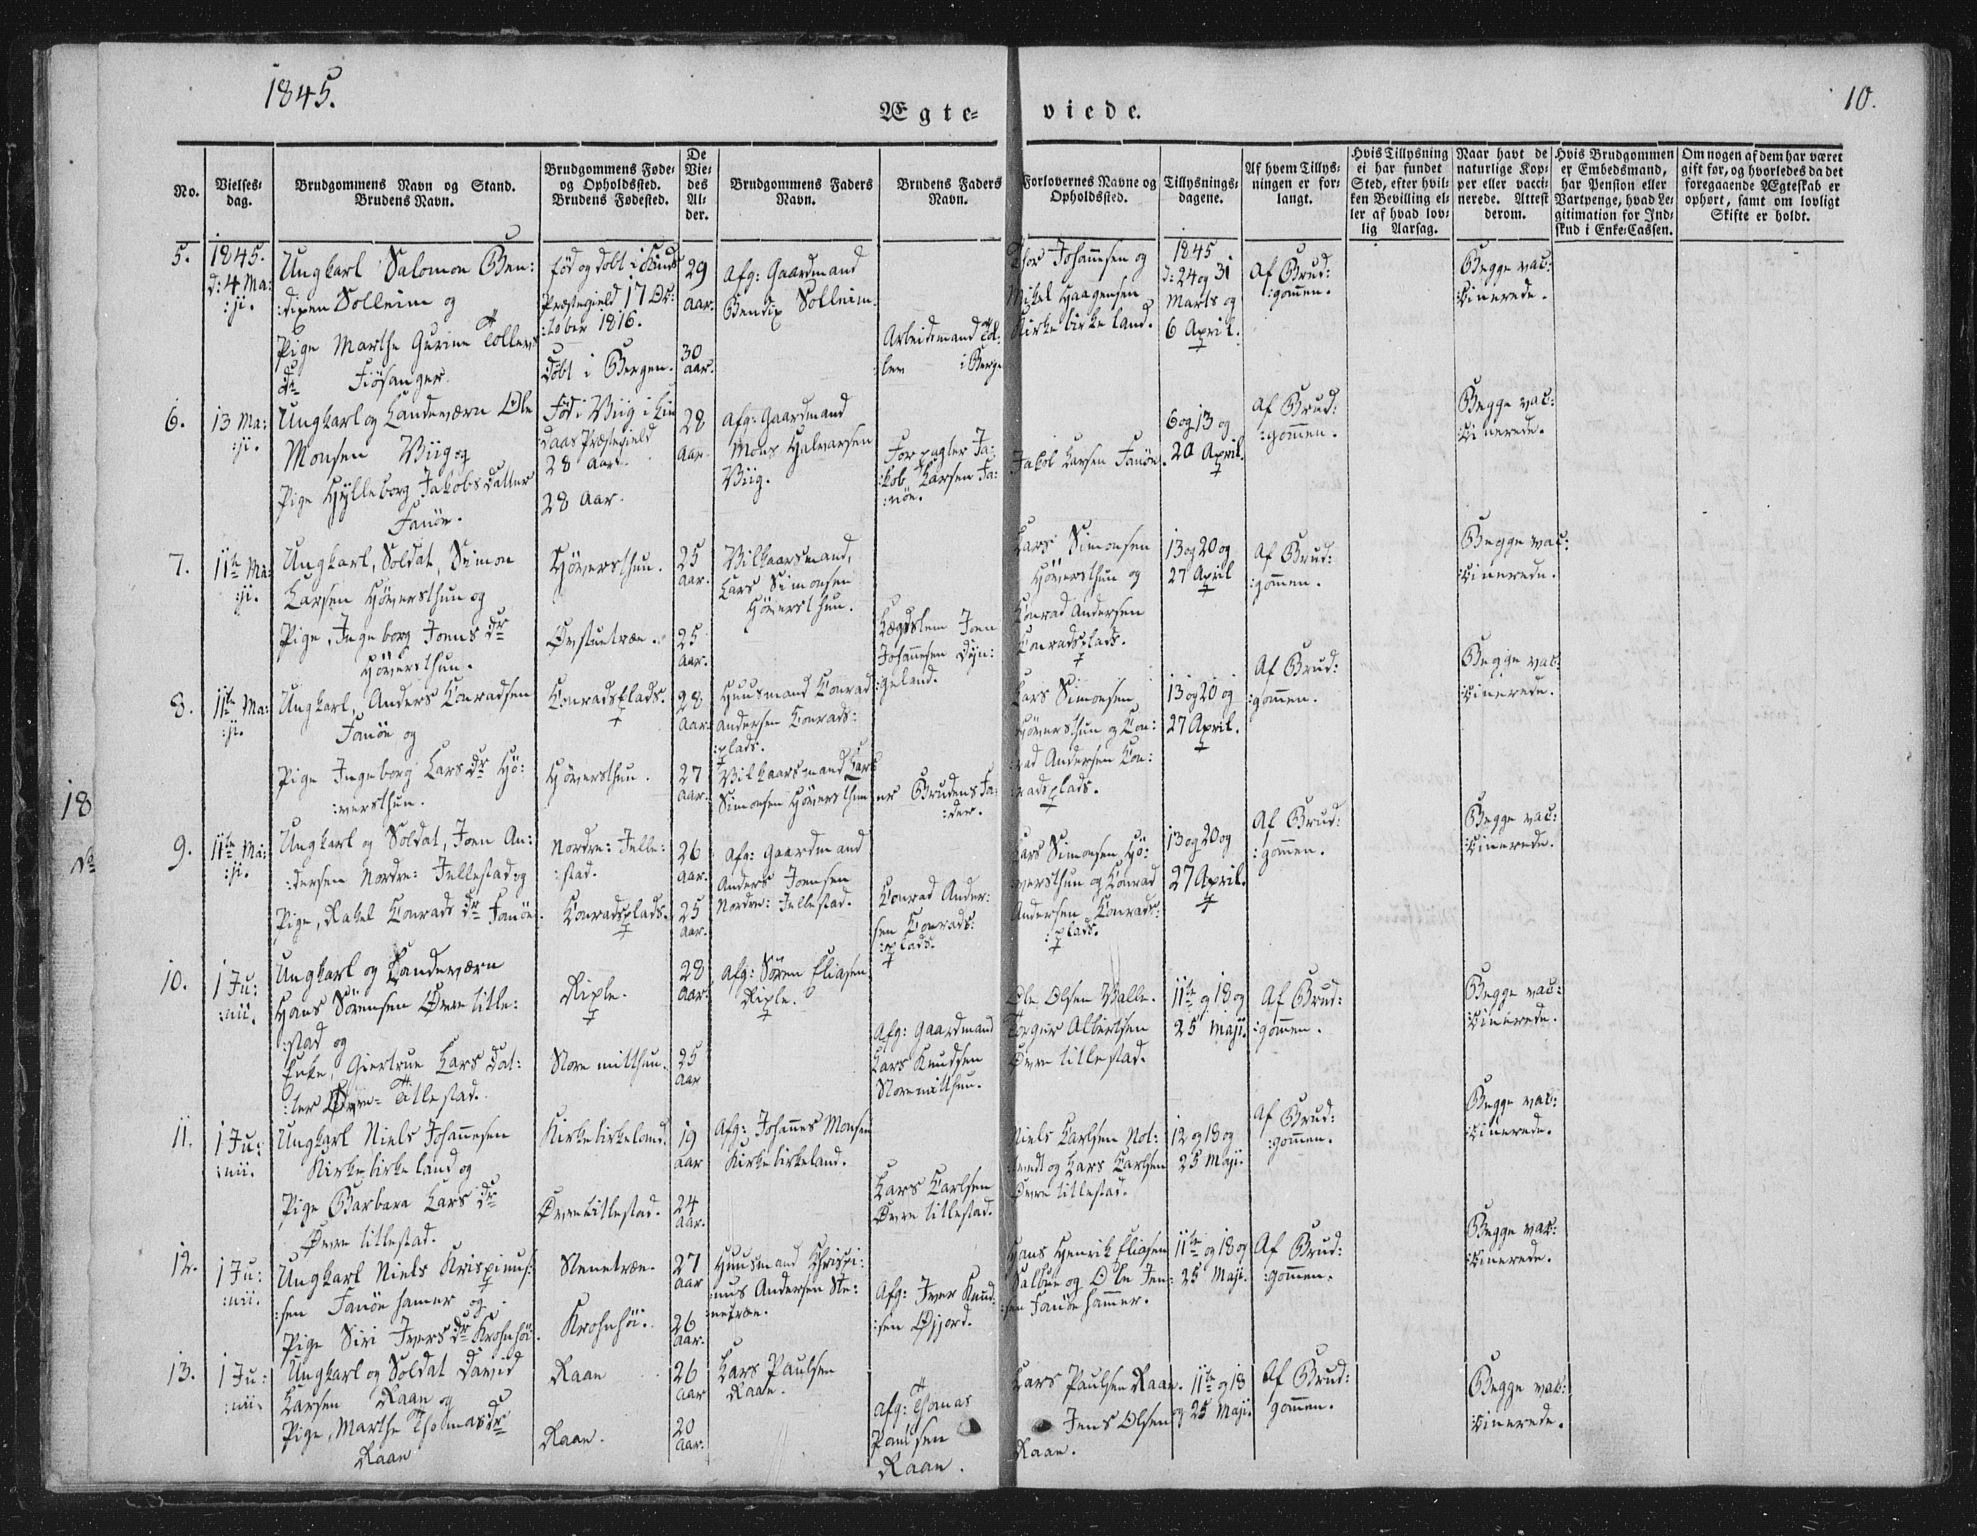 1845.
10.
Ægte-
viede.
No.
Vielses-
dag.
Brudgommens Navn og Stand.
Brudens Navn.
Brudgommens Føde-
og Opholdssted.
Brudens Fødested.
De
Vie-
des
Al-
der.
Brudgommens Faders
Navn.
Brudens Faders
Navn.
Forlovernes Navne og
Opholdssted.
Tillysnings-
dagene.
Af hvem Tillys-
ningen er for-
langt.
Hvis Tillysning
ei har fundet
Sted, efter hvil-
ken Bevilling el-
ler af hvad lov-
lig Aarsag.
Naar havt de
naturlige Kop-
per eller vacci-
nerede. Attest
derom.
Hvis Brudgommen
er Embedsmand,
har Pension eller
Vartpenge, hvad Le-
gitimation for Ind-
skud i Enke-Cassen.
Om nogen af dem har været
gift før, og hvorledes da det
foregaaende Ægteskab er
ophørt, samt om lovligt
Skifte er holdt.
5.
1845.
d: 4 Ma:
:ji.
Ungkarl Salomon Ben:
:dixen Solleim og
Pige Marthe Gurine Tollevs
dr Fiösanger.
Fød og døbt i
Præstegield 17 Oc:
:tober 1816.
Døbt i Bergen.
29
Aar.
30
Aar.
Afg: Gaardmand
Bendix Solleim.
Arbeidsmand Tol:
lev i Berge
Thor Johannesen og
Mikel Haagensen
Kirkebirkeland.
1845
d: 24 og 31
Marts og
6 April.
Af Brud:
:gommen.
Begge vac:
:cinerede.
6.
13 Ma:
:ji.
Ungkarl og Landeværn Ole
Monsen Viig og
Pige Hylleborg Jakobsdatter
Fanöe.
Fød i Viig i Lin
daas Præstegield
28 Aar.
28 Aar.
28
Aar.
Afg: Gaardmand
Mons Halvarsen
Viig.
Forpagter Ja:
:kob Larsen Fa:
:nöe.
Jakob Larsen Fanöe.
6 og 13 og
20 April.
Af Brud:
:gommen.
Begge vac:
:cinerede.
7.
11te Ma:
:ji.
Ungkarl, Soldat, Simon
Larsen Höversthun og
Pige, Ingeborg Joens dr
Höversthun.
Höversthun.
Øvstuetræe.
25
Aar.
25
Aar.
Vilkaarsmand,
Lars Simonsen
Höversthun.
Lægdslem Joen
Johannesen Dyn:
:geland.
Lars Simonsen
Höversthun og
Conrad Andersen
Conradsplads.
13 og 20 og
27 April
Af Brud:
:gommen.
Begge vac:
:cinerede.
8.
11te Ma:
:ji.
Ungkarl, Anders Conradsen
Fanöe og
Pige Ingeborg Lars dr Hö:
:versthun.
Conradsplads.
Höversthun.
28
Aar.
27
Aar.
Huusmand Conrad
Andersen Conrads:
:plads.
Vilkaarsmand Lars
Simonsen Höversthun
er Brudens Fa:
:der.
Lars Simonsen
Höversthun og Con:
rad Andersen Con:
radsplads.
13 og 20 og
27 April.
Af Brud:
:gommen.
Begge vac:
:cinerede.
9.
11te Ma:
:ji.
Ungkarl og Soldat, Joen An:
:dersen Nordre: Jellestad og
Pige, Rakel Conrads dr Fanöe.
Nordre: Jelle:
:stad.
Conradsplads.
26
Aar.
25
Aar.
Afg: Gaardmand
Anders Joensen
Nordre: Jellestad.
Conrad Ander:
sen Conrads:
:plads.
Lars Simonsen Hö:
versthun og Conrad
Andersen Conrads:
:plads.
13 og 20 og
27 April.
Af Brud:
:gommen.
Begge vac:
:cinerede.
10.
1 Ju:
:nii.
Ungkarl og Landeværn
Hans Sörensen Øvre Title:
:stad og
Enke, Giertrue Lars Dat:
:ter Øvre= Titlestad.
Riple.
Storemitthun.
28
Aar.
25
Aar
Afg: Sören Eliasen
Riple.
Afg: Gaardmand
Lars Knudsen
Storemitthun.
Ole Olsen Valle.
Torger Albertsen
Øvre Titlestad.
11te og 18 og
25 Maji.
Af Brud:
:gommen.
Begge vac:
:cinerede.
11.
1 Ju:
:nii.
Ungkarl Niels Johannesen
Kirkebirkeland og
Pige Barbara Lars dr
Øvre Titlestad.
Kirkebirkeland.
Øvre Titlestad.
19
Aar
24
Aar.
Afg: Johannes Monsen
Kirkebirkeland.
Lars Carlsen
Øvre Titlestad.
Niels Carlsen
og Lars Carlsen
Øvre Titlestad.
12 og 18 og
25 Maji.
Af Brud:
:gommen.
Begge vac:
:cinerede.
12.
1 Ju:
:nii.
Ungkarl Niels Krispinus:
:sen Fanöehamer og
Pige Siri Ivers dr Krohnhöi.
Stenetræe.
Krohnhöi.
27
Aar
26
Aar.
Huusmand Chrispi:
:nus Andersen Ste:
:netræe.
Afg: Iver Knud:
:sen Øjord.
Hans Henrik Eliasen
Salbue og Ole Jen:
:sen Fanöehammer.
11te og 18 og
25 Maji.
Af Brud:
:gommen.
Begge vac:
:cinerede.
13.
1 Ju:
:nii.
Ungkarl og Soldat David
Larsen Raae og
Pige, Marthe Thomasdr
Raae
Raae
Raae.
26
Aar
20
Aar.
Lars Paulsen
Raae.
Afg: Thomas
Paulsen
Raae.
Lars Paulsen Raae.
Jens Olsen
Raae.
11te og 18
og 25 Maji.
Af Brud:
gommen.
Begge vac:
:cinerede.
18
No